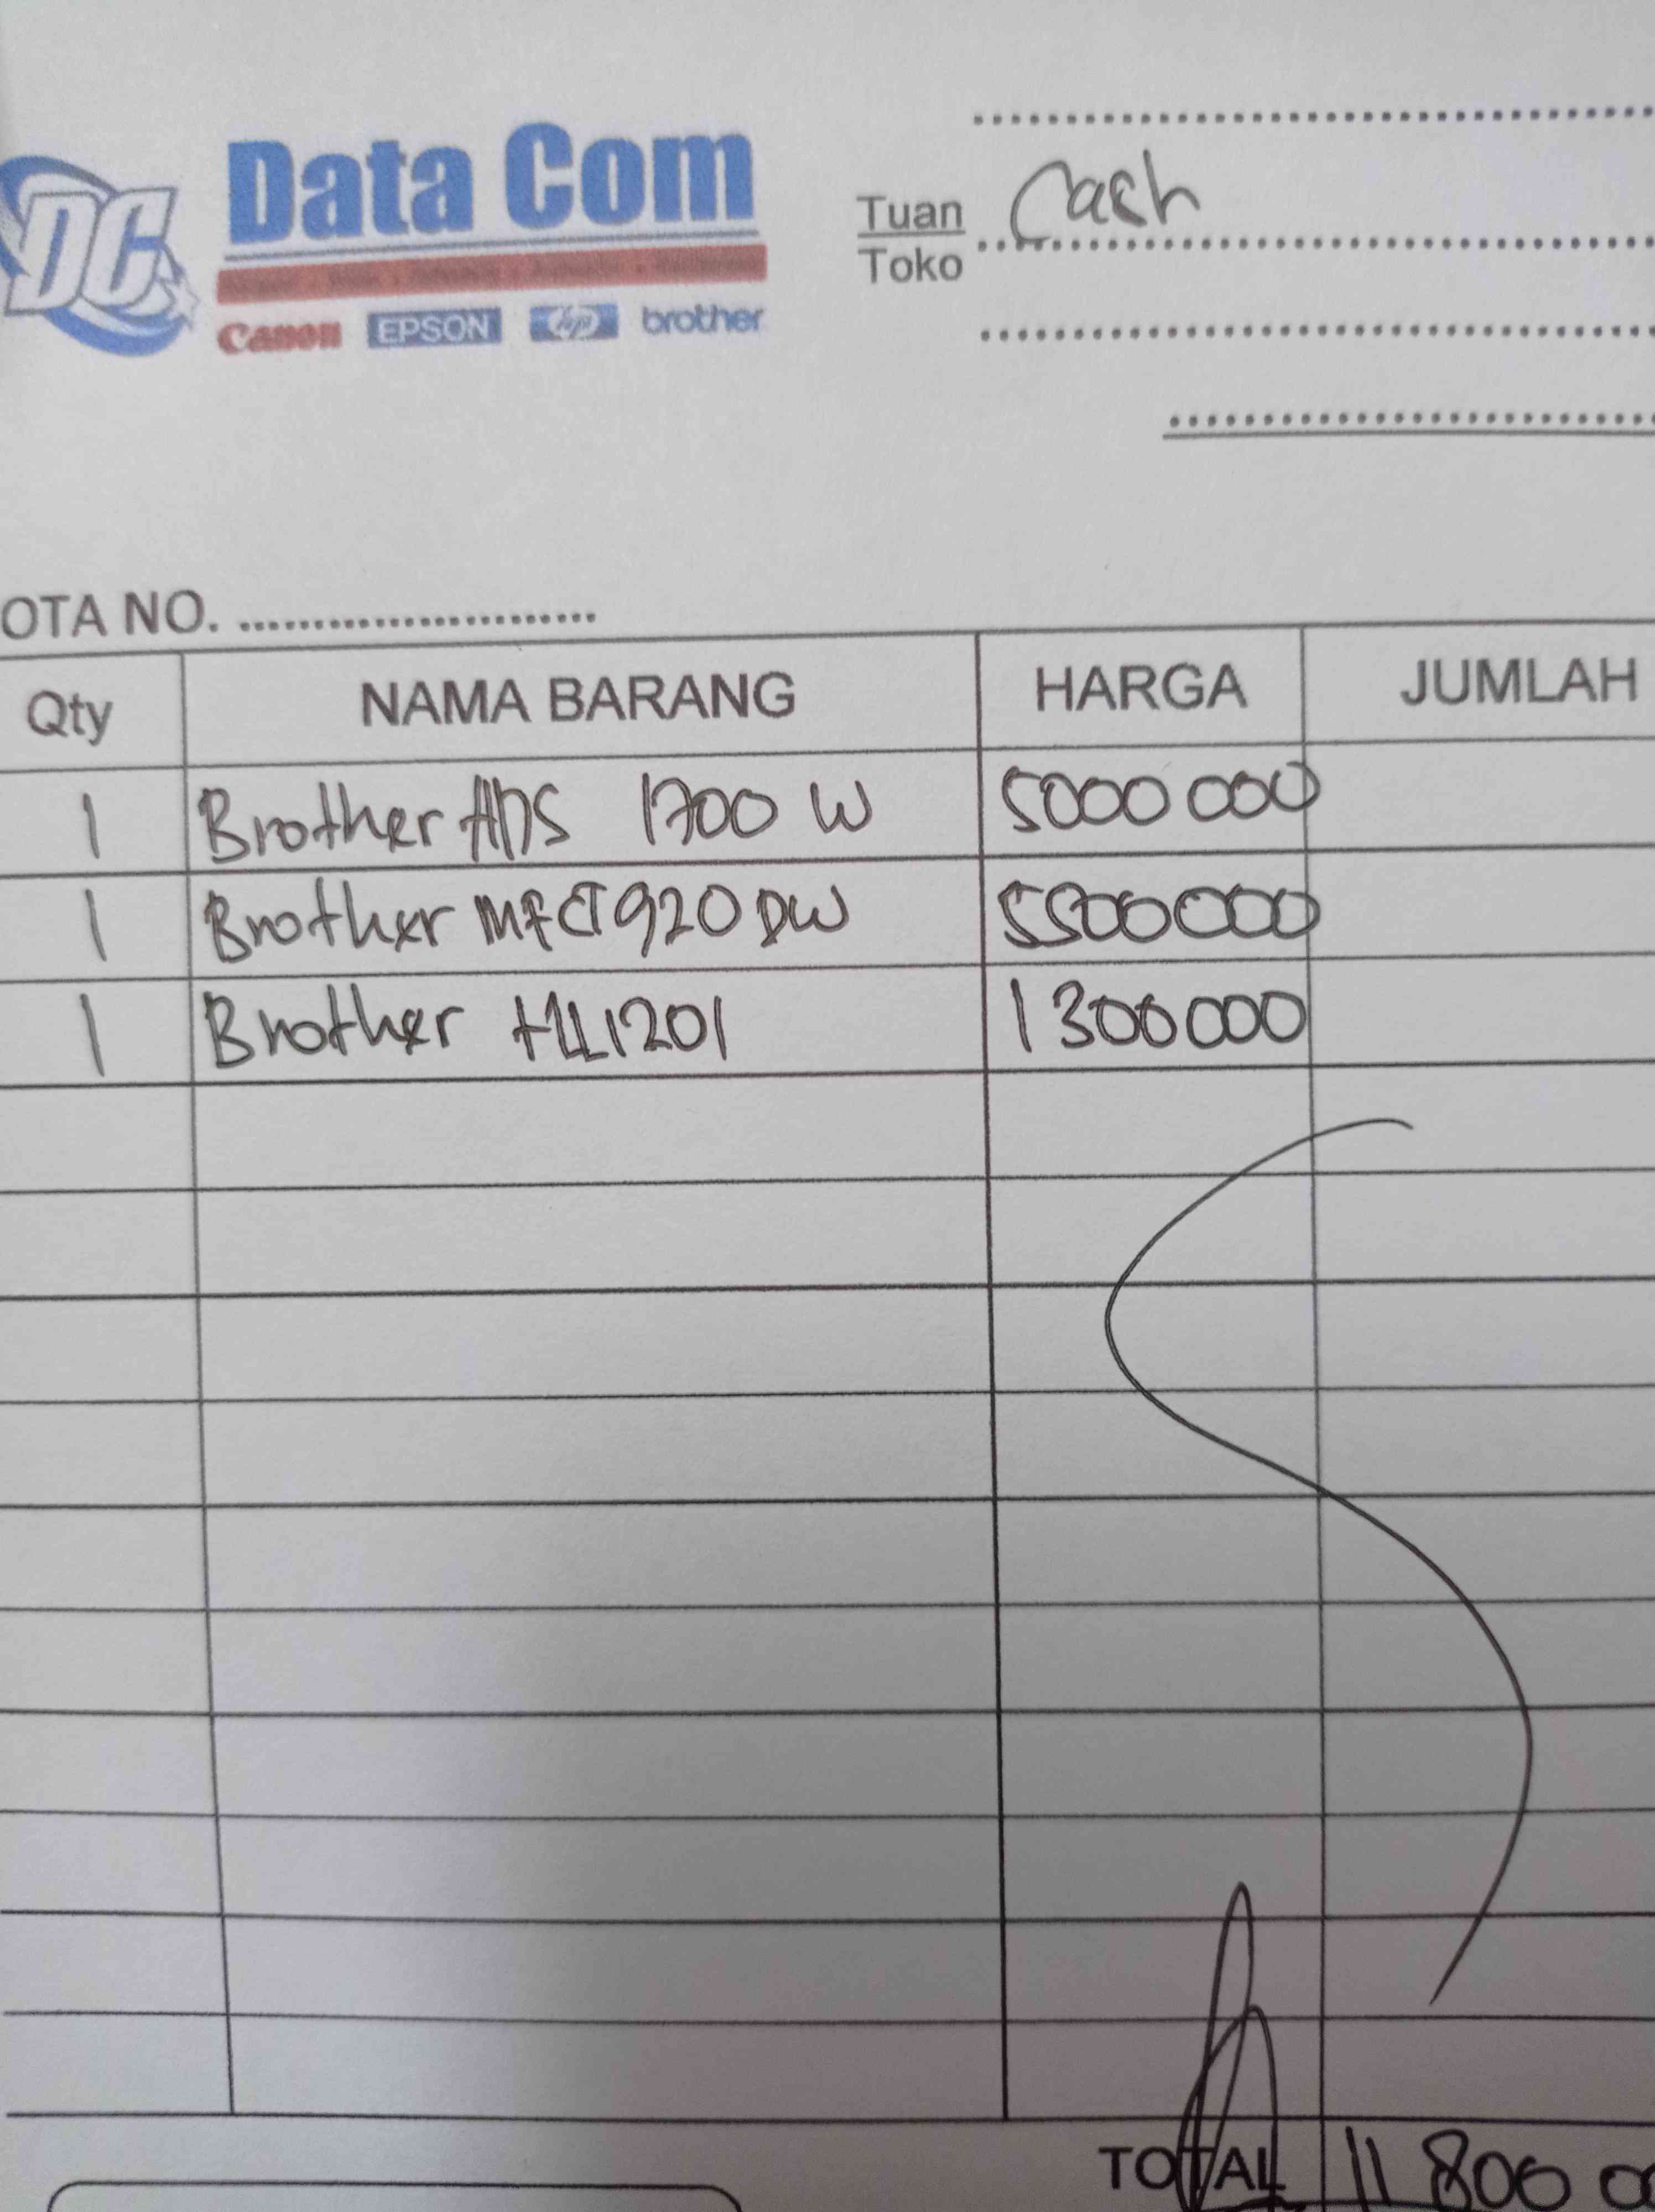 DC Data Com
Canon EPSON hp brother
Tuan Cash
Toko
OTA NO.
Qty NAMA BARANG HARGA JUMLAH
1 Brother ADS 1700 W 5000 000
1 Brother MFCT920DW 5500000
1 Brother HL1201 1300000
TOTAL 11 800 00